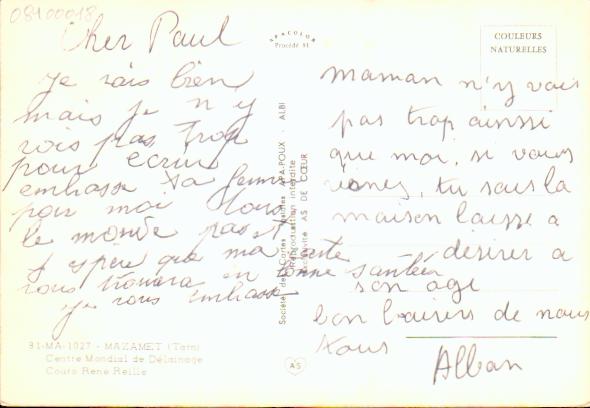 08100018
Cher Paul
Je vais bien
mais je n y
vois pas trop
pour écrire
embrasse ta femme
pour moi tous
le monde pas
J espère que ma carte
vous trouvera en bonne santée
je vous embrasse
81-MA-1027 - MAZAMET (Tarn)
Centre Mondial de Délainage
Cours René Reille
APACOLOR
Procédé 81
Société des Cartes Postales APA-POUX - ALBI
Reproduction interdite
Exclusivité AS DE CŒUR
AS
COULEURS
NATURELLES
maman n'y vois
pas trop ainssi
que moi, si vous
venez, tu sais la
maison laisse a
désirer a
son age
bon baisers de nous
tous
Alban